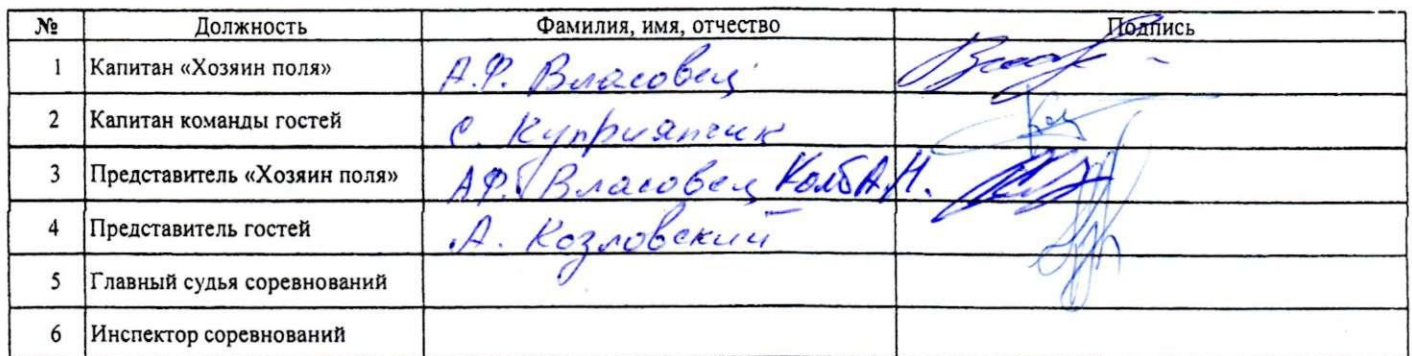 № Должность Фамилия, имя, отчество Подпись
1 Капитан «Хозяин поля» А.Ф. Власовец
2 Капитан команды гостей С. Куприянчик
3 Представитель «Хозяин поля» А.Ф. Власовец Колб А.Н.
4 Представитель гостей А. Козловский
5 Главный судья соревнований
6 Инспектор соревнований